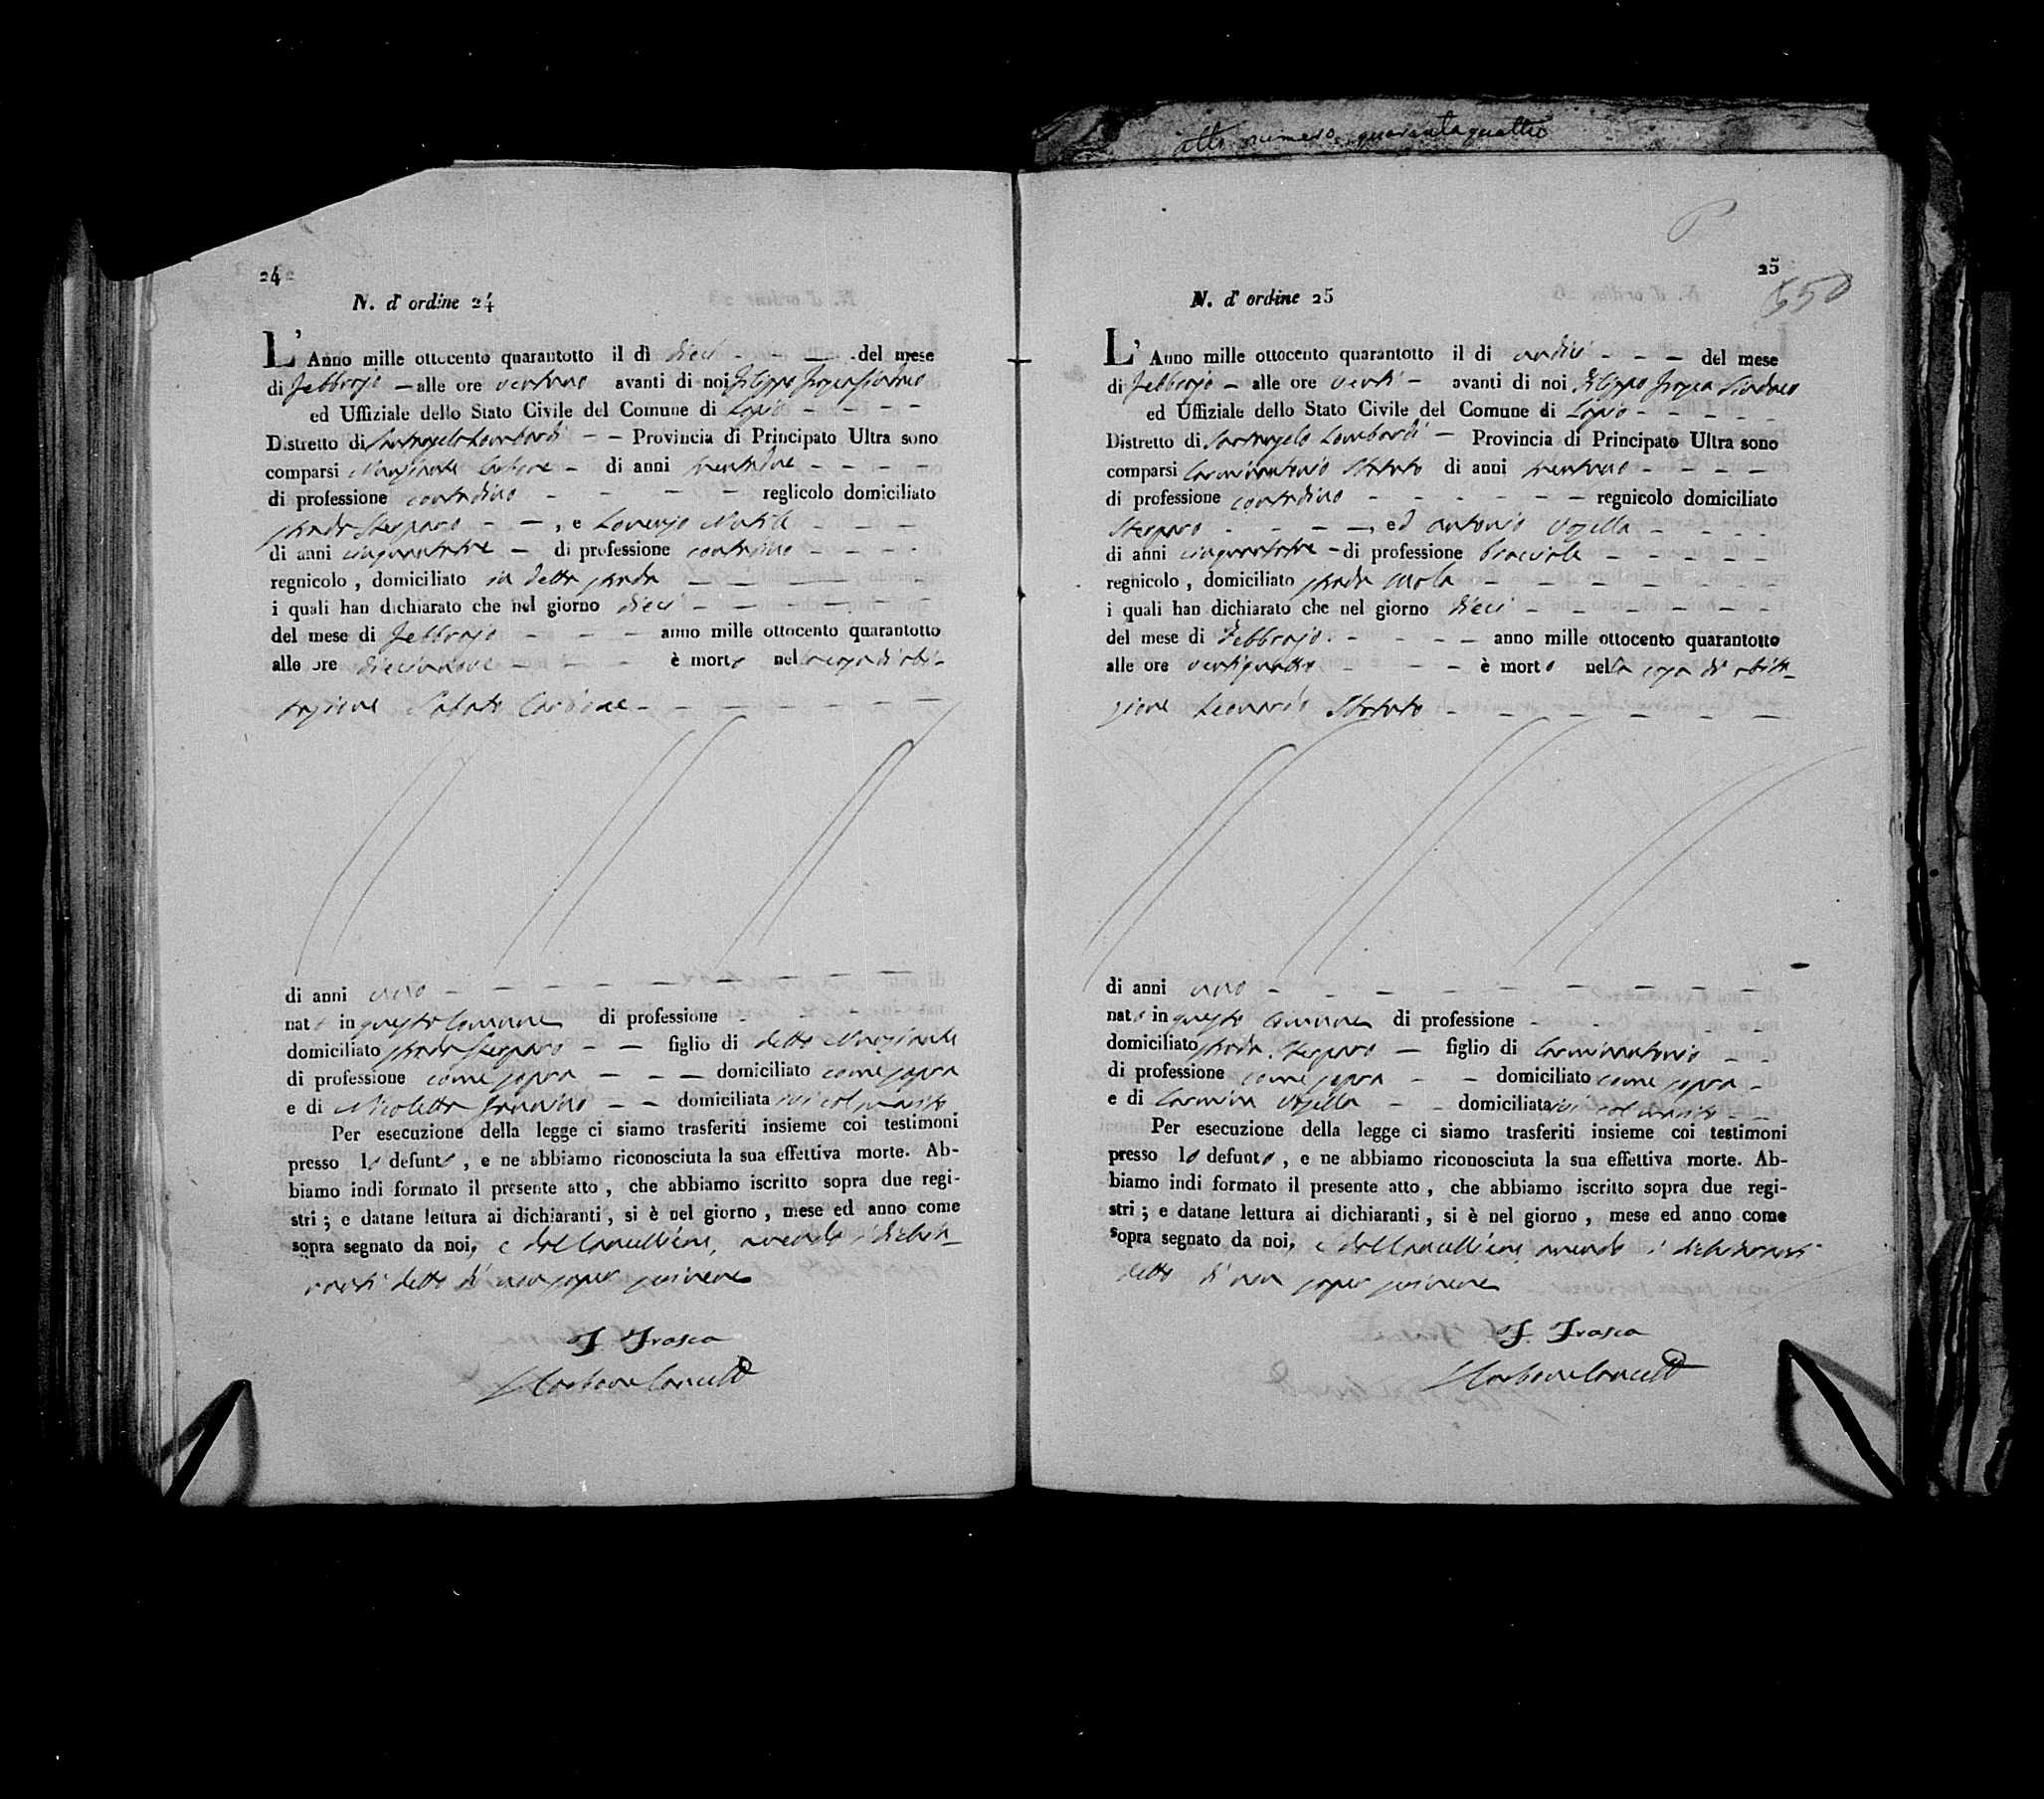 atto numero quarantaquattro
24
N. d' ordine 24
L' Anno mille ottocento quarantotto il dì dieci del mese
di Febbrajo alle ore ventuno avanti di noi Filippo Frasca Sindaco
ed Uffiziale dello Stato Civile del Comune di Lapio
Distretto di Santangelo Lombardi Provincia di Principato Ultra sono
comparsi Nunziante Carbone di anni trentadue
di professione contadino reglicolo domiciliato
strada Stesparo , e Lorenzo Nutile
di anni cinquantatre di professione contadino
regnicolo , domiciliato in detta strada
i quali han dichiarato che nel giorno dieci
del mese di Febbrajo anno mille ottocento quarantotto
alle ore diecinove è morto nella casa di abi-
tazione Sabato Carbone
di anni uno
nato in questo Comune di professione
domiciliato strada Stesparo figlio di detto Nunziante
di professione come sopra domiciliato come sopra
e di Nicoletta domiciliata ivi col marito
Per esecuzione della legge ci siamo trasferiti insieme coi testimoni
presso lo defunto , e ne abbiamo riconosciuta la sua effettiva morte. Ab-
biamo indi formato il presente atto , che abbiamo iscritto sopra due regi-
stri ; e datane lettura ai dichiaranti , si è nel giorno , mese ed anno come
sopra segnato da noi, e dal Cancelliere, avendo i dichia-
ranti detto di non saper scrivere
F. Frasca
Carbone Cancell
25
550
N. d' ordine 25
L' Anno mille ottocento quarantotto il di undici del mese
di Febbrajo alle ore venti avanti di noi Filippo Frasca Sindaco
ed Uffiziale dello Stato Civile del Comune di Lapio
Distretto di Santangelo Lombardi Provincia di Principato Ultra sono
comparsi Carminantonio di anni trentuno
di professione contadino regnicolo domiciliato
Stesparo , ed Antonio Vozella
di anni cinquantatre di professione bracciale
regnicolo , domiciliato strada Mola
i quali han dichiarato che nel giorno dieci
del mese di Febbrajo anno mille ottocento quarantotto
alle ore ventiquattro è morto nella casa di abita-
zione Leonardo
di anni uno
nato in questo Comune di professione
domiciliato strada Stesparo figlio di Carminantonio
di professione come sopra domiciliato come sopra
e di Carmina Vozella domiciliata ivi col marito
Per esecuzione della legge ci siamo trasferiti insieme coi testimoni
presso lo defunto , e ne abbiamo riconosciuta la sua effettiva morte. Ab-
biamo indi formato il presente atto , che abbiamo iscritto sopra due regi-
stri ; e datane lettura ai dichiaranti , si è nel giorno , mese ed anno come
sopra segnato da noi, e dal Cancelliere, avendo i dichiaranti
detto di non saper scrivere
F. Frasca
Carbone Cancell